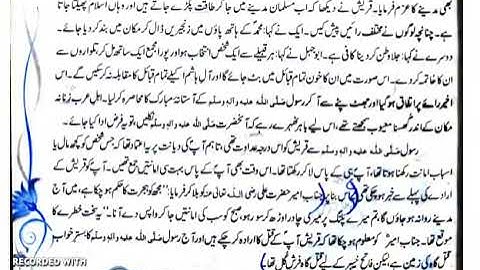 بھی مدینے کا عزم فرمایا۔ قریش نے دیکھا کہ اب مسلمان مدینے میں جا کر طاقت پکڑتے جاتے ہیں اور وہاں اسلام پھیلتا جاتا
ہے۔ چنانچہ لوگوں نے مختلف رائیں پیش کیں۔ ایک نے کہا: محمدؐ کے ہاتھ پاؤں میں زنجیریں ڈال کر مکان میں بند کر دیا جائے۔
دوسرے نے کہا: جلاوطن کر دینا کافی ہے۔ ابوجہل نے کہا: ہر قبیلے سے ایک شخص انتخاب ہو اور پورا مجمع ایک ساتھ مل کر تلواروں سے
ان کا خاتمہ کر دے۔ اس صورت میں ان کا خون تمام قبائل میں بٹ جائے گا اور آلِ ہاشم اکیلے تمام قبائل کا مقابلہ نہ کر سکیں گے۔ اس
اخیر رائے پر اتفاق ہو گیا اور جھٹ پٹے سے آ کر رسول صلی اللہ علیہ والہ وسلم کے آستانۂ مبارک کا محاصرہ کر لیا۔ اہلِ عرب زنانہ
مکان کے اندر گھسنا معیوب سمجھتے تھے، اس لیے باہر ٹھہرے رہے کہ آنحضرت صلی اللہ علیہ والہ وسلم نکلیں، تو یہ فرض ادا کیا جائے۔
رسول صلی اللہ علیہ والہ وسلم سے قریش کو اس درجہ عداوت تھی، تاہم آپؐ کی دیانت پر یہ اعتماد تھا کہ جس شخص کو کچھ مال یا
اسباب امانت رکھنا ہوتا تھا، آپؐ ہی کے پاس لا کر رکھتا تھا۔ اس وقت بھی آپؐ کے پاس بہت سی امانتیں جمع تھیں۔ آپؐ کو قریش کے
ارادے کی پہلے سے خبر ہو چکی تھی، اس بنا پر جناب امیر حضرت علی رضی اللہ تعالیٰ عنہ کو بلا کر فرمایا: "مجھ کو ہجرت کا حکم ہو چکا ہے، میں آج
مدینے روانہ ہو جاؤں گا، تم میرے پلنگ پر میری چادر اوڑھ کر سو رہو، صبح کو سب کی امانتیں جا کر واپس دے آنا۔" یہ سخت خطرے کا
موقع تھا۔ جناب امیرؓ کو معلوم ہو چکا تھا کہ قریش آپؐ کے قتل کا ارادہ کر چکے ہیں اور آج رسول صلی اللہ علیہ والہ وسلم کا بستر خواب
قتل گاہ کی زمین ہے، لیکن فاتح خیبر کے لیے قتل گاہ فرشِ گل تھا۔
RECORDED WITH